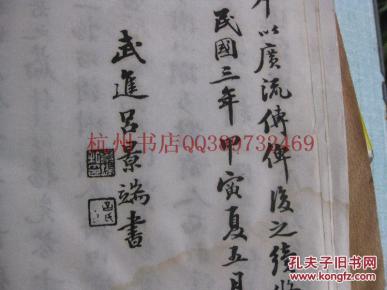 以廣流傳俾後之續修
民國三年甲寅夏五月
武進呂景端書
杭州书店QQ389732469
孔夫子旧书网